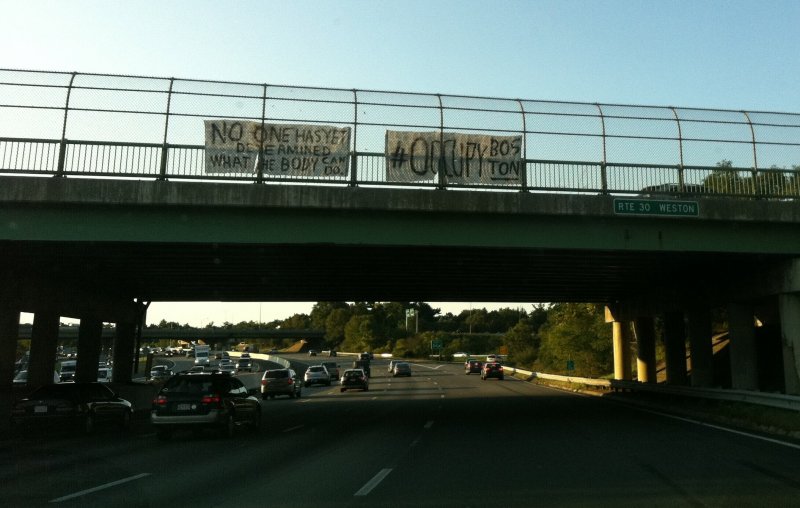 NO ONE HAS YET
DETERMINED
WHAT THE BODY CAN
DO.
#OCCUPY BOS
TON
RTE 30 WESTON